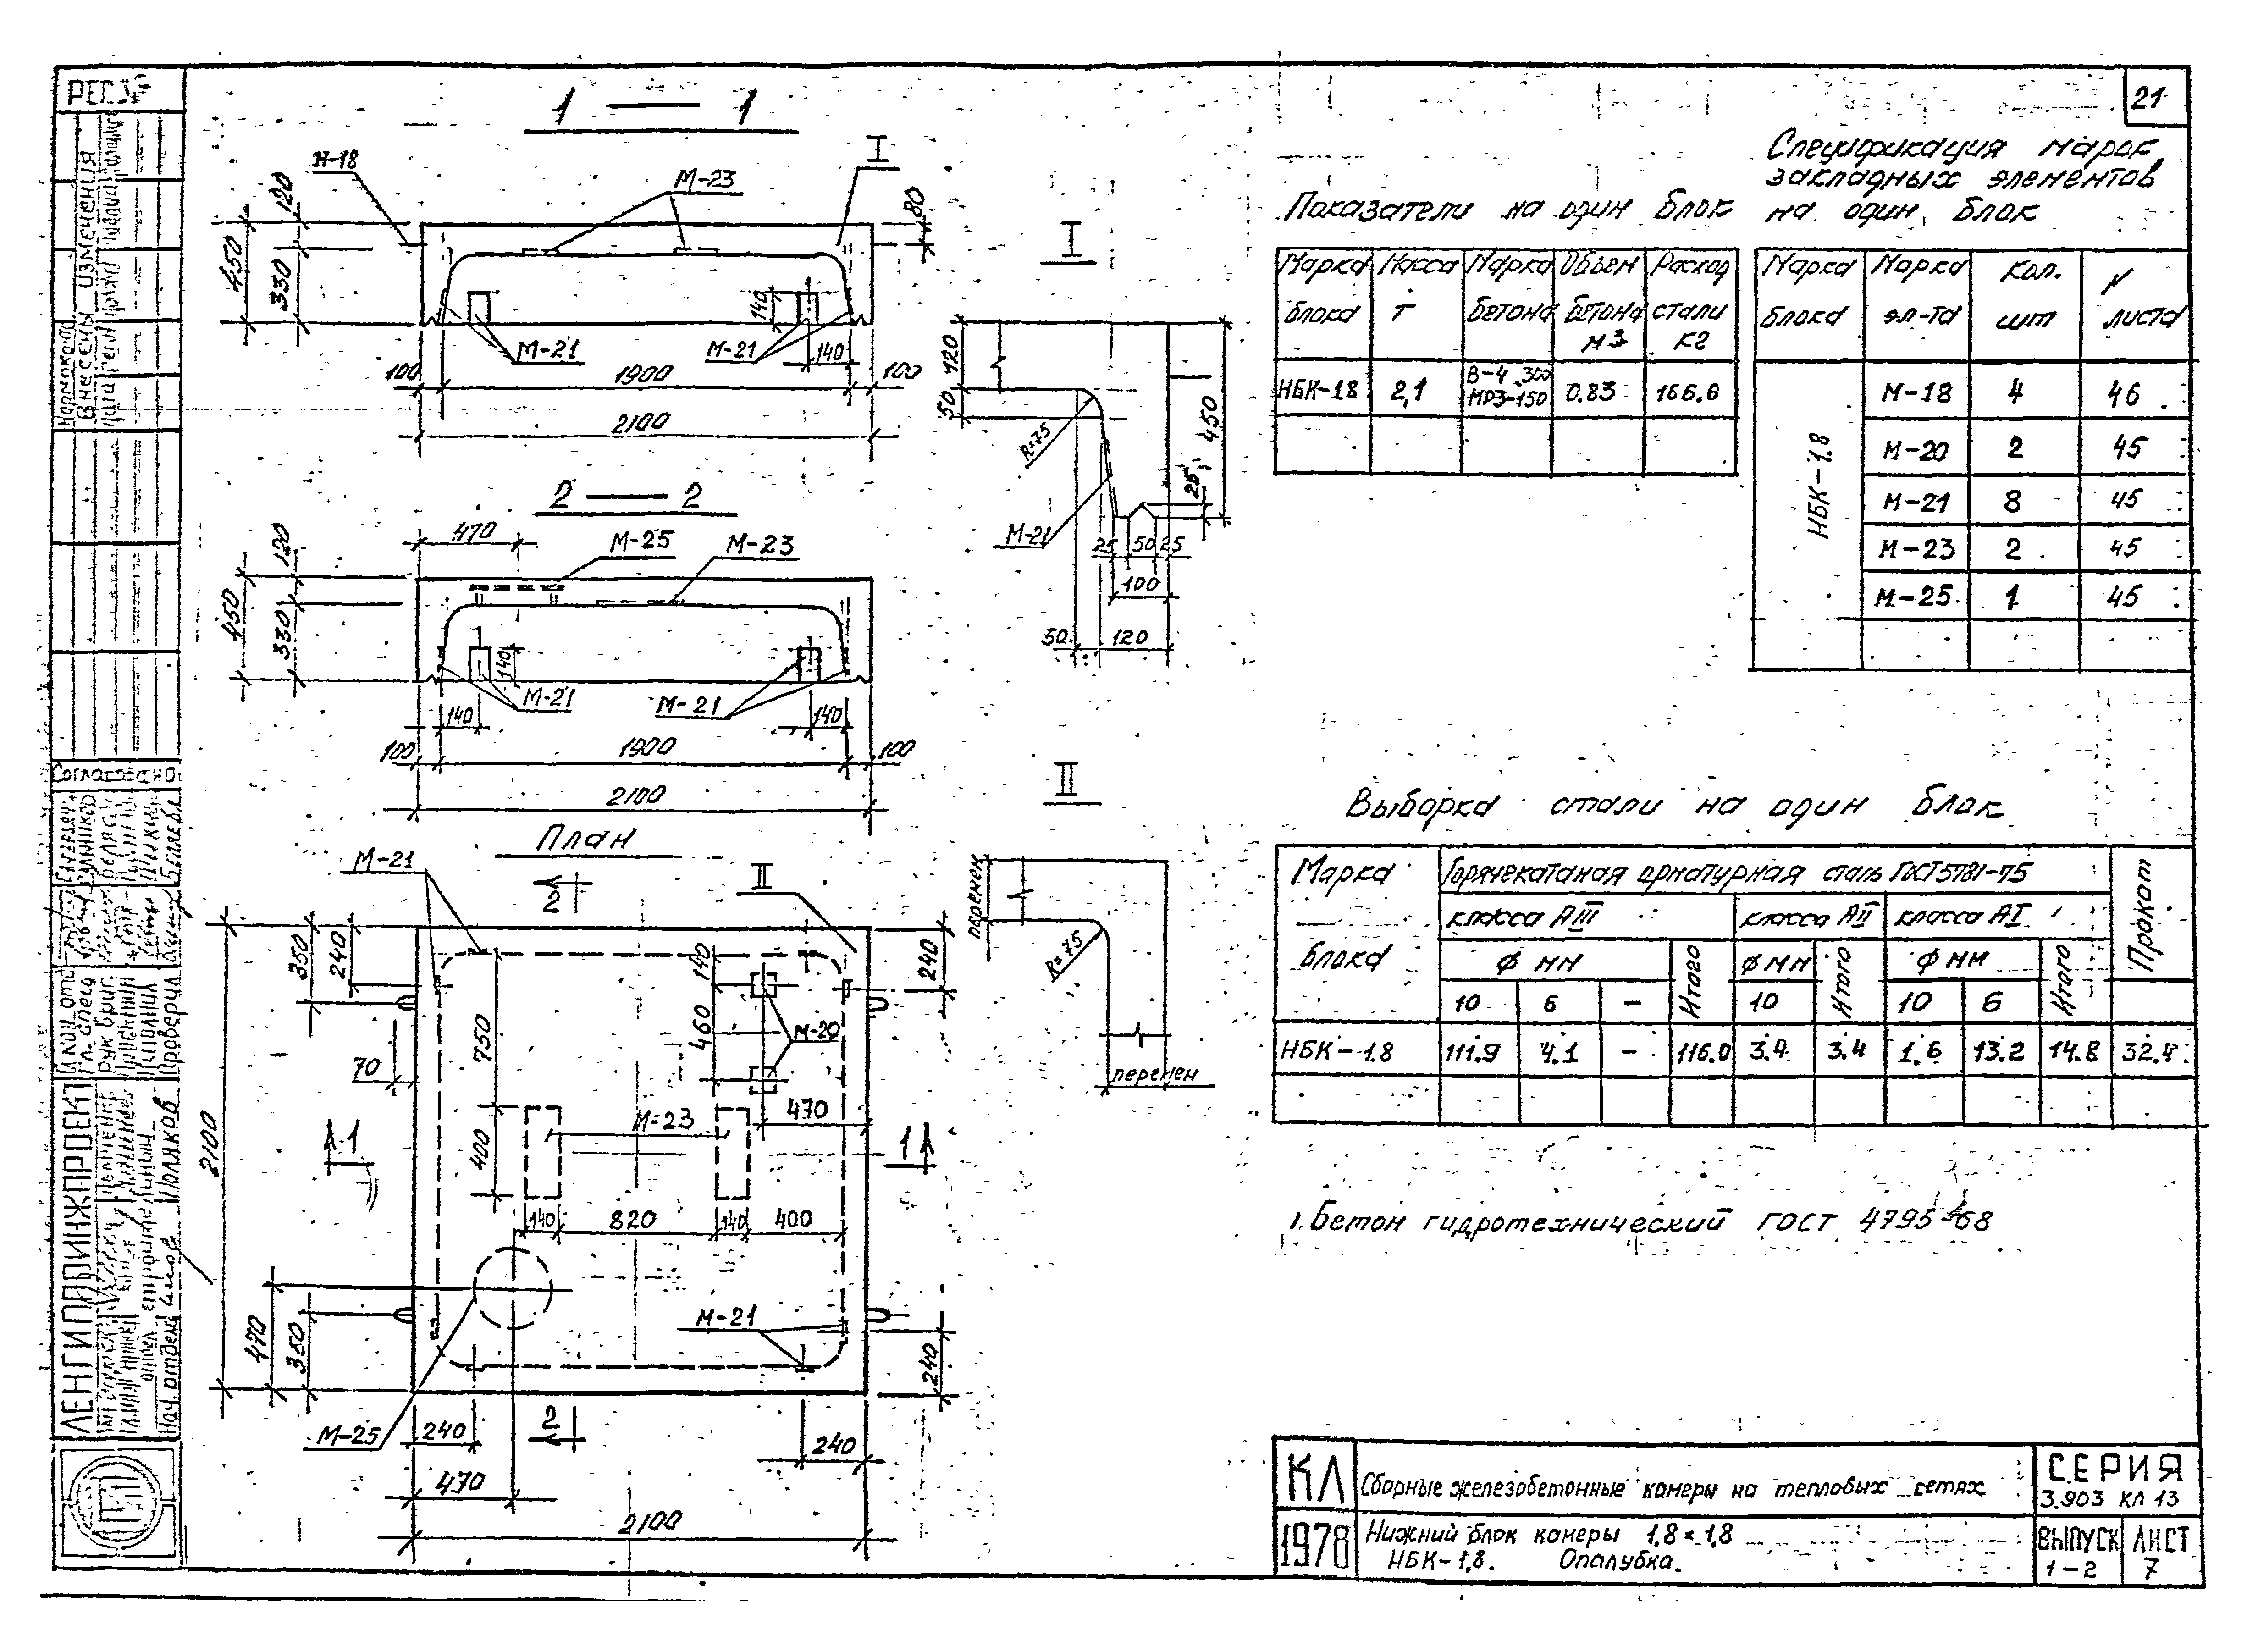 21
1 — 1
М-18
М-23
I
120
80
450
330
140
М-21
М-21
140
100
1900
100
2100
2 — 2
470
М-25
М-23
120
450
330
140
М-21
М-21
140
140
100
1900
100
2100
План
М-21
2
II
350
240
140
240
750
460
М-20
70
470
2100
М-23
1
1
400
140
820
140
400
470
350
М-21
240
М-25
240
2
240
470
2100
I
120
50
R=75
450
25
М-21
25
50
25
100
50
120
II
перемен
R=75
перемен
Показатели на один блок
Марка блока
Масса т
Марка бетона
Объем бетона м3
Расход стали кг
НБК-1.8
2,1
В-4 300 МРЗ-150
0.83
166.6
Спецификация марок
закладных элементов
на один блок
Марка блока
Марка эл-та
Кол. шт
N листа
НБК-1.8
М-18 4 46
М-20 2 45
М-21 8 45
М-23 2 45
М-25 1 45
Выборка стали на один блок
Марка блока
Горячекатаная арматурная сталь ГОСТ 5781-75
Прокат
класса АIII
класса АII
класса АI
Ф мм
Итого
Ф мм
Итого
Ф мм
Итого
10 6 –
10
10 6
НБК-1.8 111.9 4.1 – 116.0 3.4 3.4 1.6 13.2 14.8 32.4
1. Бетон гидротехнический ГОСТ 4795-68
КЛ
Сборные железобетонные камеры на тепловых сетях
СЕРИЯ
3.903 КЛ 13
1978
Нижний блок камеры 1,8×1,8
НБК-1,8. Опалубка.
ВЫПУСК
1-2
ЛИСТ
7
Внесены изменения
Согласовано
Гл. спец
Рук. бриг.
Исполнил
Проверил
ЛЕНГИПРОИНЖПРОЕКТ
Нач. отдела
Поляков